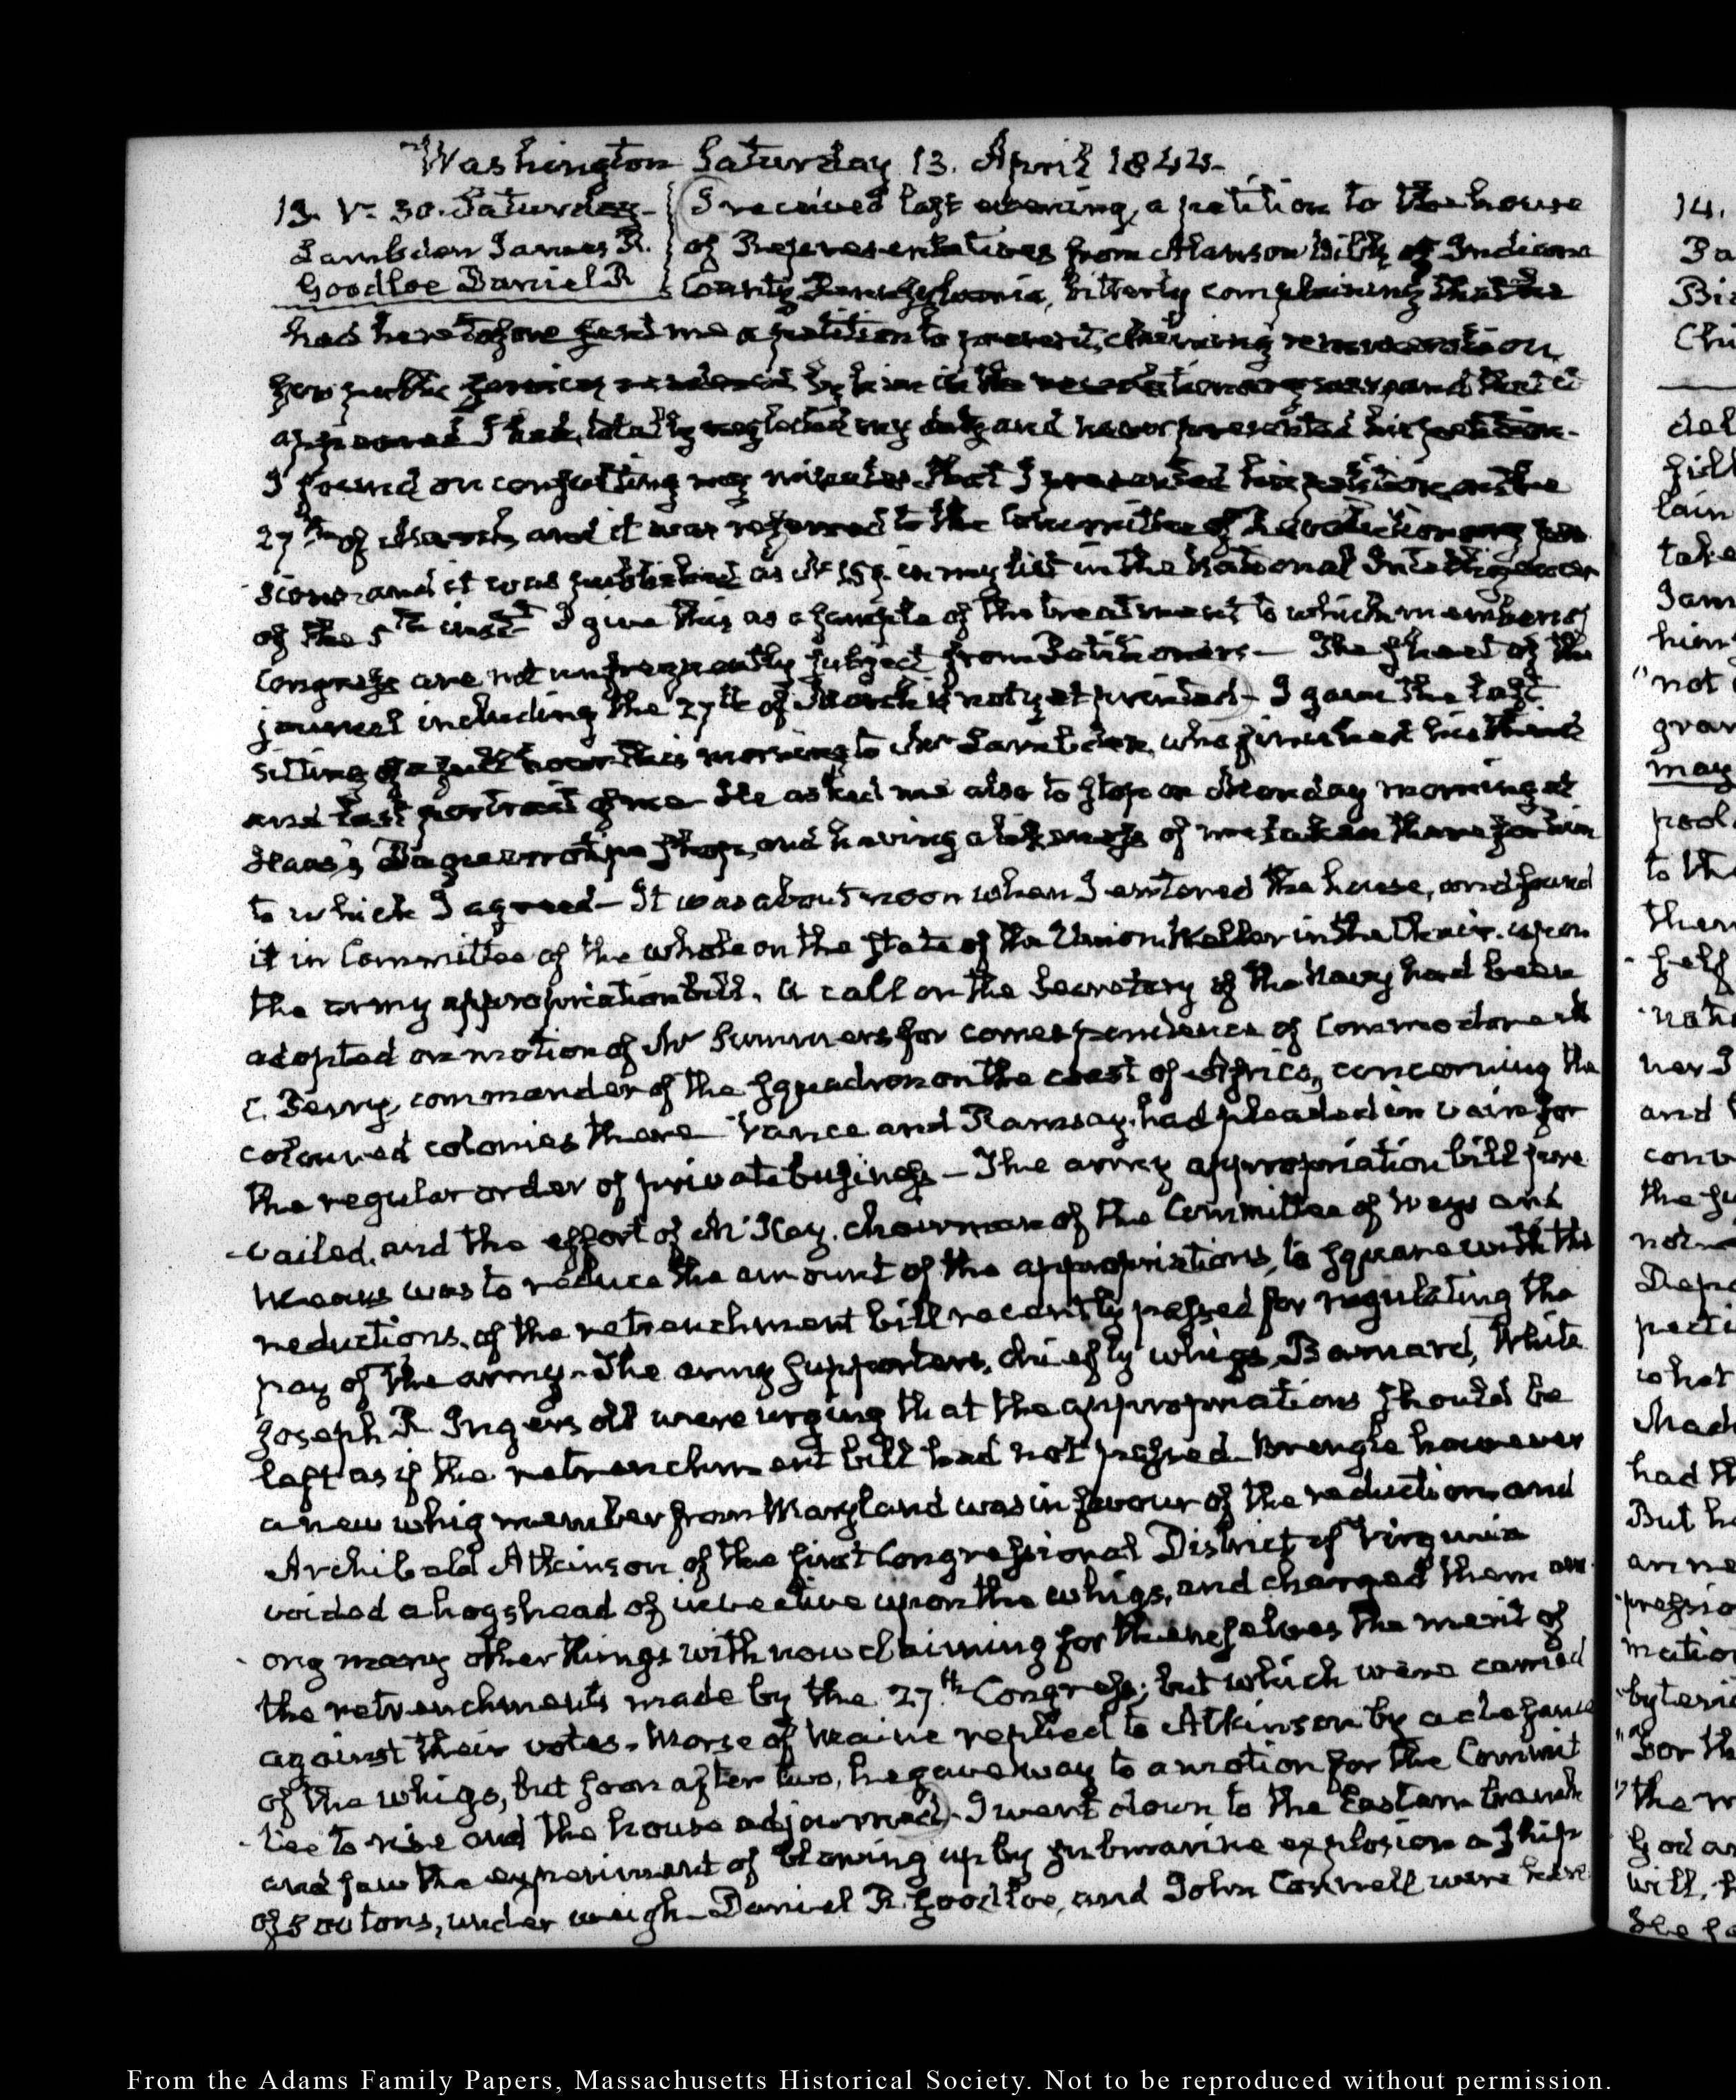 Washington Saturday 13. April 1844.
13. V. 30. Saturday. I received last evening, a petition to the house
Lambden James R. of Representatives from Alanson Bills of Indiana
Goodloe Daniel R County Pennsylvania, bitterly complaining that he
had heretofore sent me a petition to present, claiming remuneration
for public services rendered by him in the revolutionary war, and that it
appeared I had totally neglected my duty and never presented his petition.
I found on consulting my minutes that I presented his petition on the
27th of March and it was referred to the Committee of Revolutionary pen
sions and it was published as No 159. in my list in the National Intelligencer
of the 5th inst. I give this as a sample of the treatment to which members of
Congress are not unfrequently subject from Petitioners— The sheet of the
journal including the 27th of March is not yet printed— I gave the last
sitting of a full hour this morning to Mr Lambden, who finished his third
and last portrait of me— He asked me also to stop on Monday morning at
Haas's Daguerrotype shop, and having a likeness of me taken there for him
to which I agreed— It was about noon when I entered the house, and found
it in Committee of the whole on the state of the Union. Weller in the Chair. upon
the army appropriation bill. A call on the Secretary of the Navy had been
adopted on motion of Mr Summers for correspondence of Commodore M
C. Perry, commander of the squadron on the coast of Africa, concerning the
coloured colonies there— Vance and Ramsay had pleaded in vain for
the regular order of private business— The army appropriation bill pre
vailed, and the effort of McKay, chairman of the Committee of Ways and
Means was to reduce the amount of the appropriations, to square with the
reductions of the retrenchment bill recently passed for regulating the
pay of the army— The army supporters, chiefly whigs, Barnard, White
Joseph R Ingersoll were urging that the appropriations should be
left as if the retrenchment bill had not passed— Brengle however
a new whig member from Maryland was in favour of the reduction, and
Archibald Atkinson of the first Congressional District of Virginia
voided a hogshead of invective upon the whigs, and charged them am
ong many other things with now claiming for themselves the merit of
the retrenchments made by the 27th Congress; but which were carried
against their votes. Morse of Maine replied to Atkinson by a defence
of the whigs, but soon after two, he gave way to a motion for the Commit
tee to rise and the house adjourned— I went down to the Eastern branch
and saw the experiment of blowing up by submarine explosion a ship
of 500 tons, under weigh— Daniel R. Goodloe, and John Connell were here
From the Adams Family Papers, Massachusetts Historical Society. Not to be reproduced without permission.